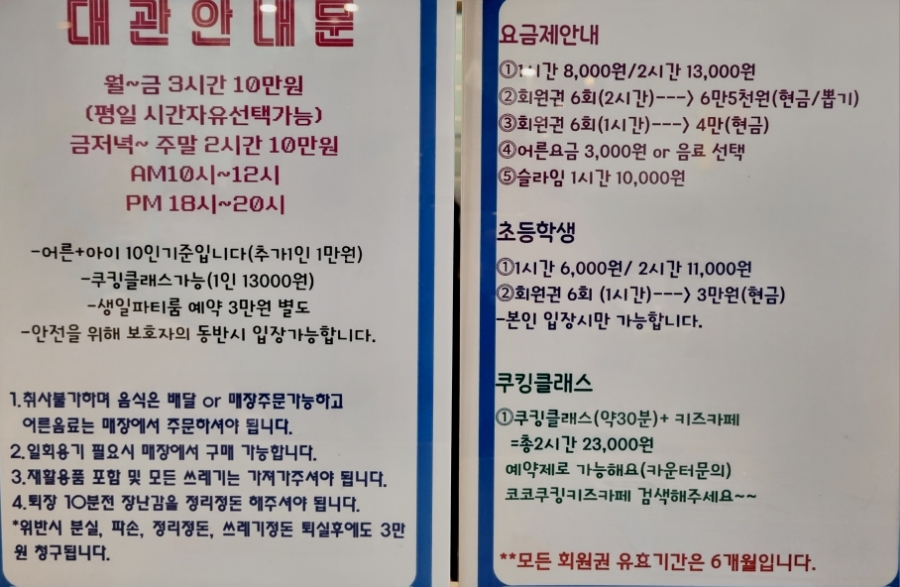 대관안내문
월~금 3시간 10만원
(평일 시간자유선택가능)
금저녁~ 주말 2시간 10만원
AM10시~12시
PM 18시~20시
-어른+아이 10인기준입니다(추가1인 1만원)
-쿠킹클래스가능(1인 13000원)
-생일파티룸 예약 3만원 별도
-안전을 위해 보호자의 동반시 입장가능합니다.
1.취사불가하며 음식은 배달 or 매장주문가능하고
어른음료는 매장에서 주문하셔야 됩니다.
2.일회용기 필요시 매장에서 구매 가능합니다.
3.재활용품 포함 및 모든 쓰레기는 가져가주셔야 됩니다.
4.퇴장 10분전 장난감을 정리정돈 해주셔야 됩니다.
*위반시 분실, 파손, 정리정돈, 쓰레기정돈 퇴실후에도 3만
원 청구됩니다.
요금제안내
①1시간 8,000원/2시간 13,000원
②회원권 6회(2시간)---> 6만5천원(현금/뽑기)
③회원권 6회(1시간)---> 4만(현금)
④어른요금 3,000원 or 음료 선택
⑤슬라임 1시간 10,000원
초등학생
①1시간 6,000원/ 2시간 11,000원
②회원권 6회 (1시간)---> 3만원(현금)
-본인 입장시만 가능합니다.
쿠킹클래스
①쿠킹클래스(약30분)+ 키즈카페
=총2시간 23,000원
예약제로 가능해요(카운터문의)
코코쿠킹키즈카페 검색해주세요~~
**모든 회원권 유효기간은 6개월입니다.